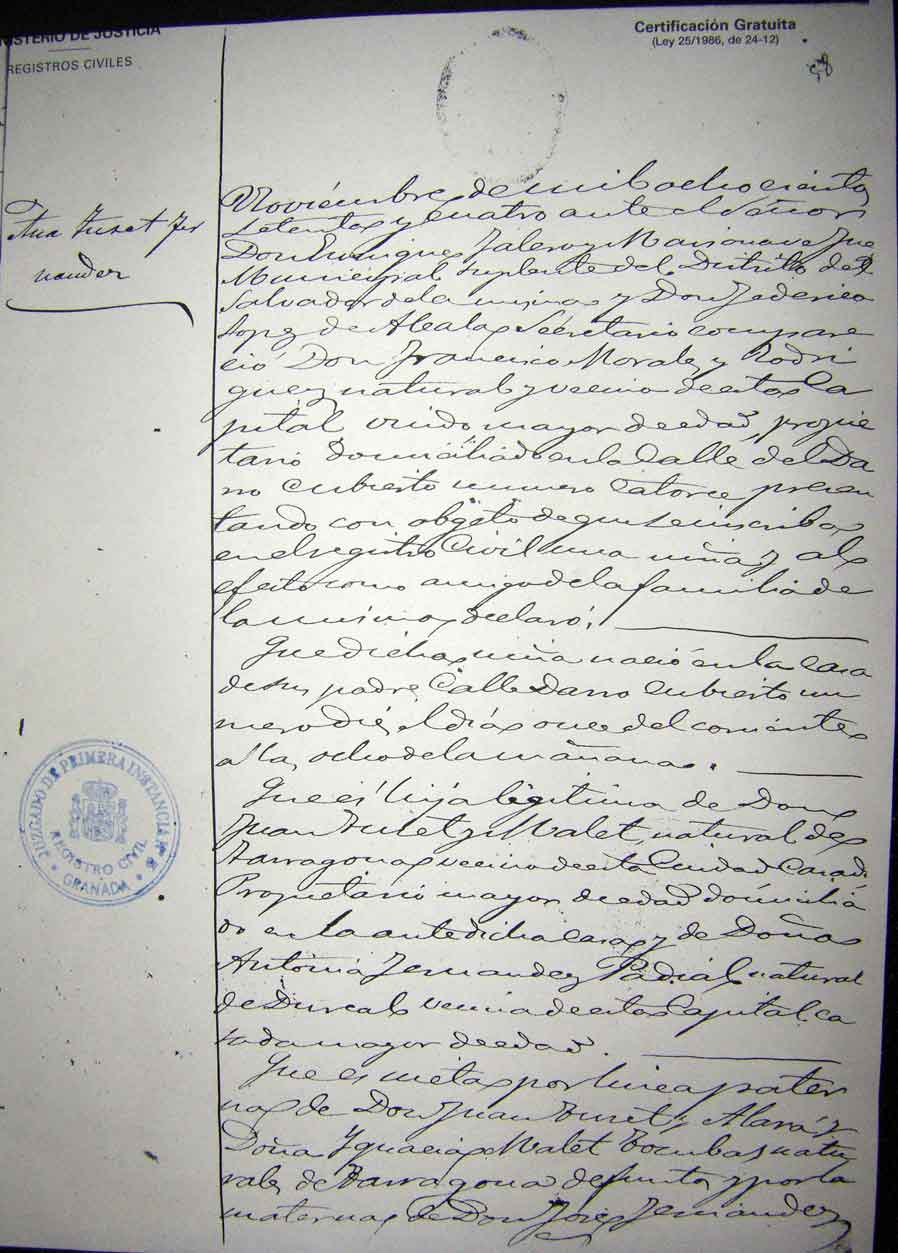 MINISTERIO DE JUSTICIA
REGISTROS CIVILES
Certificación Gratuita
(Ley 25/1986, de 24-12)
Ana Turet Fer
nandez
Noviembre de mil ochociento
setenta y cuatro ante el Señor
Don Enrique Valero y Maisonave Jue
Municipal suplente del Distrito del
Salvador de la misma y Don Federico
Lopez de Alcala Secretario compare
ció Don Francisco Morales y Rodri
guez natural y vecino de esta Ca
pital viudo mayor de edad, propie
tario domiciliado en la Calle del Da
rro cubierto numero Catorce presen
tando con objeto de que se inscriba
en el registro Civil una niña y al
efeito como amigo de la familia de
la misma declaró.
Que dicha niña nació en la casa
de su padre Calle Darro Cubierto nu
mero diez el dia once del corriente
a las ocho de la mañana.
Que es hija legitima de Don
Juan Turet y Malet, natural de
Tarragona vecino de esta Ciudad Casad
Propietario mayor de edad domicilia
do en la antedicha casa y de Doña
Antonia Fernandez Padial natural
de Durcal vecina de esta Capital ca
sada mayor de edad.
Que es nieta por linea pater
na de Don Juan Turet y Alará y
Doña Ygnacia Malet natu
rales de Tarragona difuntos y por la
materna de Don José Fernandez
JUZGADO DE PRIMERA INSTANCIA Nº
REGISTRO CIVIL
GRANADA